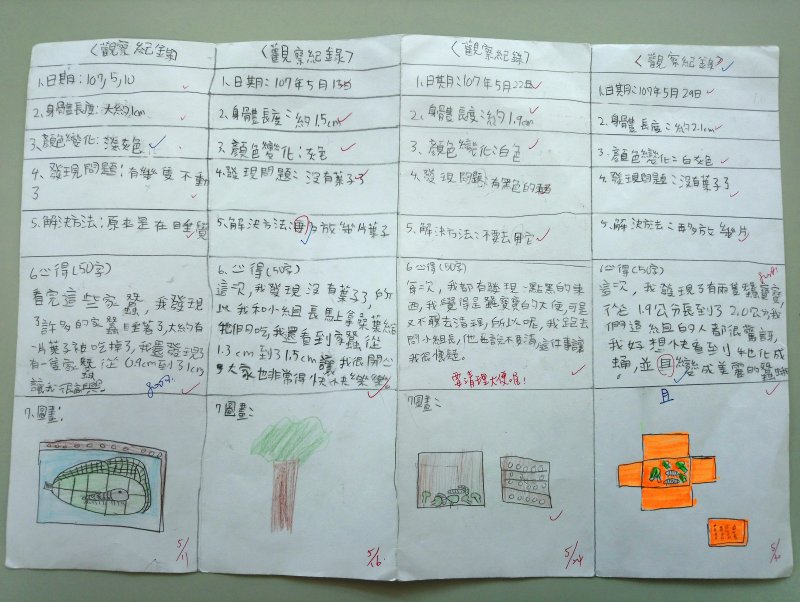 〈觀察紀錄〉
1.日期:107,5,10
2.身體長度:大約1cm
3.顏色變化:深灰色
4.發現問題:有幾隻不動
了
5.解決方法:原來是在睡覺
6.心得(50字)
看完這些家蠶,我發現
了許多的家蠶睡著了,大約有
片葉子被吃掉了,我還發現了
有一隻家蠶從0.9cm到了1cm
讓我很訝異。
good!
7.圖畫:
5/11
〈觀察紀錄〉
1.日期:107年5月15日
2.身體長度:約1.5cm
3.顏色變化:灰色
4.發現問題:沒有葉子了
5.解決方法:再多放幾片葉子
6.心得(50字)
這次,我發現沒有葉子了,所以
我和小組長馬上拿桑葉給
牠們吃,我還看到家蠶從
1.3cm到了1.5cm讓我很開心
大家也非常得快快樂樂
7圖畫:
5/16
〈觀察紀錄〉
1.日期:107年5月22日
2.身體長度:約1.9cm
3.顏色變化:白色
4.發現問題:有黑色的
5.解決方法:不要去用它
6心得(50字)
每次,我都有發現一點黑的東
西,我覺得是蠶寶寶的大便,可是
又不敢去清理,所以呢,我跑去
問小組長,他也說不要清,這件事讓
我很懷疑。
需清理大便喔!
7圖畫:
5/24
〈觀察紀錄〉
1.日期:107年5月29日
2.身體長度:約2.1cm
3.顏色變化:白灰色
4.發現問題:沒有葉子了
5.解決方法:再多放幾片
6心得(50字)
good!
這次,我發現了有兩隻蠶寶寶,
從1.9公分長到了2.0公分,我
們這組的人都很驚訝,
我好想快看到牠化成
蛹,並目變成美麗的蠶蛾
且
5/30